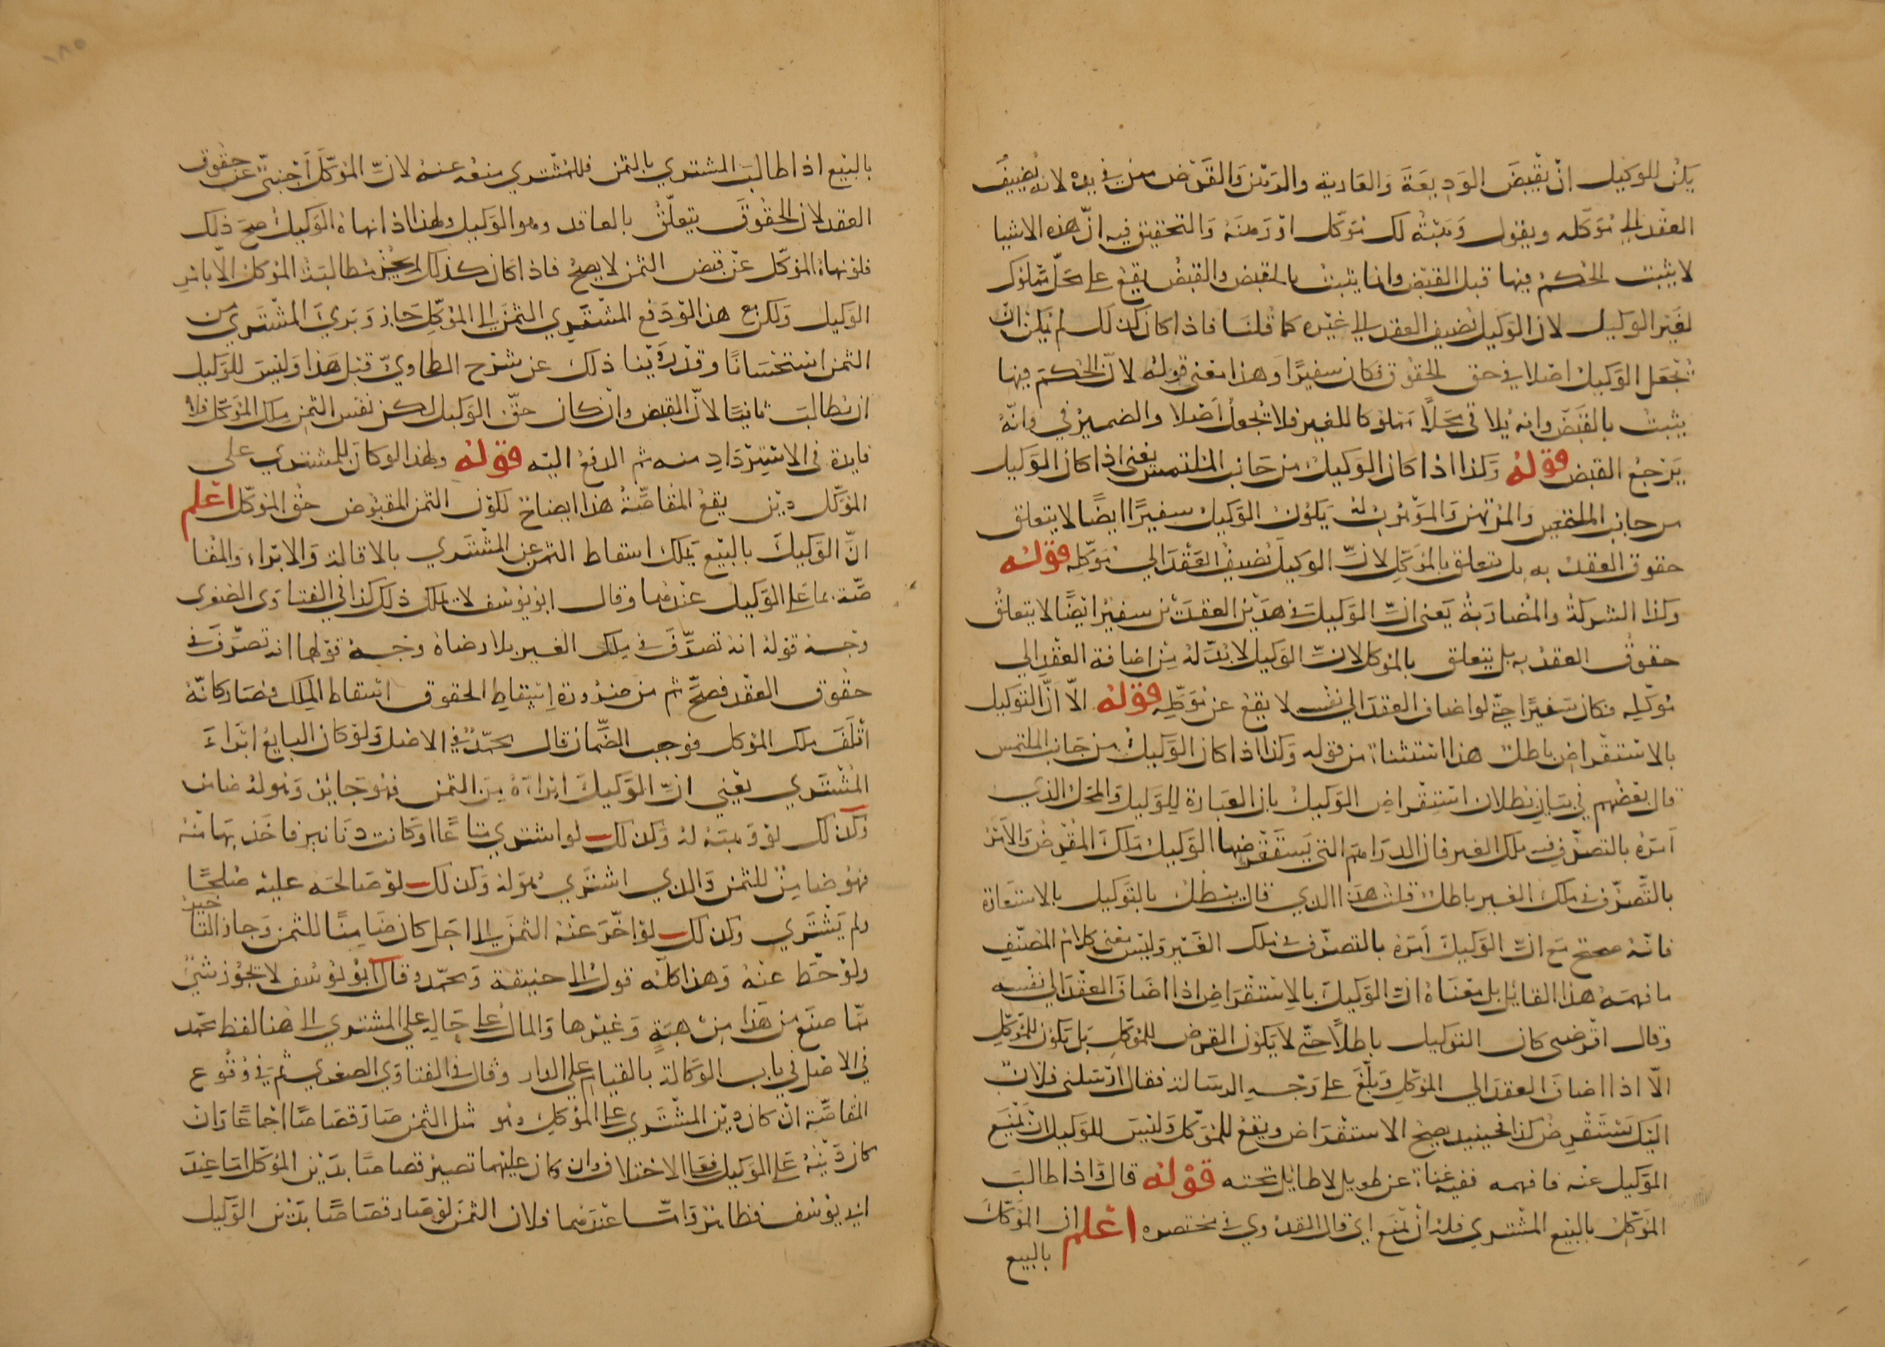 يكن للوكيل ان يقبض الوديعة والعارية والدين والقرض ممن في يده لانه يضيف
العقد الي موكله ويقول وهبته لك موكل او رهنه والتحقيق فيه انّ هذه الاشيا
لا يثبت الحكم فيها قبل القبض وانما يثبت بالقبض والقبض يقع علي محلّ مملوك
لغير الوكيل لان الوكيل يضيف العقد الي غيره كما قلنا فاذا كان كذلك لم يكن ان
يجعل الوكيل اصلا في حق الحقوق فكان سفيرا وهذا معني قوله لانّ الحكم فيها
يثبت بالقبض وانه يلاقي محلاً مملوكا للغير فلا يجعل اصلا والضمير في وانّه
يرجع القبض قوله وكذا اذا كان الوكيل من جانب الملتمس يعني اذا كان الوكيل
من جانب الملتمس والمرتهن يكون الوكيل سفيرا ايضًا لا يتعلق
حقوق العقد به بل يتعلق بالموكل لانّ الوكيل يضيف العقد الي موكّله قوله
وكذا الشركة والمضاربة يعني انّ الوكيل في هذين العقدين سفير ايضًا لا يتعلق
حقوق العقد به بل يتعلق بالموكل لانّ الوكيل لا بدّ له من اضافة العقد الي
موكّله فكان سفيرا حتّي لو اضاف العقد الي نفسه لا يقع عن موكّله قوله الّا انّ التوكيل
بالاستقراض باطل هذا استثناء من قوله وكذا اذا كان الوكيل من جانب الملتمس
قال بعضهم في بيان بطلان استقراض الوكيل بان العبارة للوكيل والمحل الذي
امره بالتصرّف في ملك الغير فان الدراهم التي يستقرضها الوكيل ملك المقرض والامر
بالتصرّف في ملك الغير باطل قلت هذا الذي قال يبطل بالتوكيل بالاستعارة
فانّه صحيح مع انّ الوكيل امره بالتصرّف في ملك الغير وليس معني كلام المصنّف
ما فهمه هذا القايل بل معناه انّ الوكيل بالاستقراض اذا اضاف العقد الي نفسه
وقال اقرضني كان التوكيل باطلًا حتّي لا يكون القرض للموكّل بل يكون للوكيل
الّا اذا اضاف العقد الي الموكل وبلّغ علي وجه الرسالة فقال ارسلني فلانٌ
اليك يستقرض كذا فحينيذ يصح الاستقراض ويقع للموكّل وليس للوكيل ان يمنع
الموكيل عنه فافهمه ففيه غناء عن طويل لا طايل تحته قوله قال واذا طالب
الموكّل بالبيع المشتري فله ان يمنع اي قال القدوري في مختصره اعلم ان الموكّل
بالبيع
بالبيع اذا طالب المشتري بالثمن فللمشتري منعه عنه لانّ الموكّل اجنبيّ عن حقوق
العقد لان الحقوق يتعلّق بالعاقد وهو الوكيل ولهذا اذا نهاه الوكيل صح ذلك
فلو نهاه الموكّل عن قبض الثمن لا يصح فاذا كان كذلك لم يجز مطالبة الموكل الّا بامر
الوكيل ولكن مع هذا لو دفع المشتري الثمن الي الموكّل جاز وبري المشتري من
الثمن استحسانًا وقد روينا ذلك عن شرح الطحاويّ قبل هذا وليس للوكيل
ان يطالب ثانيًا لانّ القبض وان كان حقّ الوكيل لكن نفس الثمن ملك الموكّل فلا
فايدة في الاسترداد منه ثم الدفع اليه قوله ولهذا لو كان للمشتري علي
الموكّل دين يقع المقاصّة هذا ايضاح لكون الثمن المقبوض حق الموكّل اعلم
انّ الوكيل بالبيع يملك اسقاط الثمن عن المشتري بالاقالة والابراء والمقا
صّة بما علي الوكيل عندهما وقال ابو يوسف لا يملك ذلك كذا في الفتاوي الصغري
وجه قوله انه تصرّف في ملك الغير بلا رضاه وجه قولهما انه تصرّف في
حقوق العقد فصحّ ثم من ضرورة اسقاط الحقوق اسقاط الملك فصار كانّه
اتلف ملك الموكل فوجب الضّمان قال محمّد في الاصل ولو كان البايع ابراء
المشتري يعني انّ الوكيل ابراه من الثمن فهو جايز وهو له ضامن
وكذلك لو وهبه له وكذلك لو اشتري متاعًا او كانت دنانير فاخذ بها منه
فهو ضامن للثمن والذي اشتري هو له وكذلك لو صالحه عليه صلحًا
ولم يشتري وكذلك لو اخّر عنه الثمن الي اجل كان ضامنًا للثمن وجاز التاخير
ولو حطّ عنه وهذا كلّه قول ابي حنيفة ومحمّد وقال ابو يوسف لا يجوز شيئ
ممّا صنع من هذا من هبةٍ وغيرها والمال علي حاله علي المشتري الي هنا لفظ محمّد
في الاصل في باب الوكالة بالقيام علي الدار وقال في الفتاوي الصغري ثم في وقوع
المقاصّة ان كان دين المشتري علي الموكل وهو مثل الثمن صار قصاصًا اجماعًا وان
كان دينه علي الوكيل فعلي الاختلاف وان كان عليهما تصير قصاصًا بدين الموكّل امّا عند
ابي يوسف فظاهر وامّا عندهما فلان الثمن لو صار قصاصًا بدين الوكيل